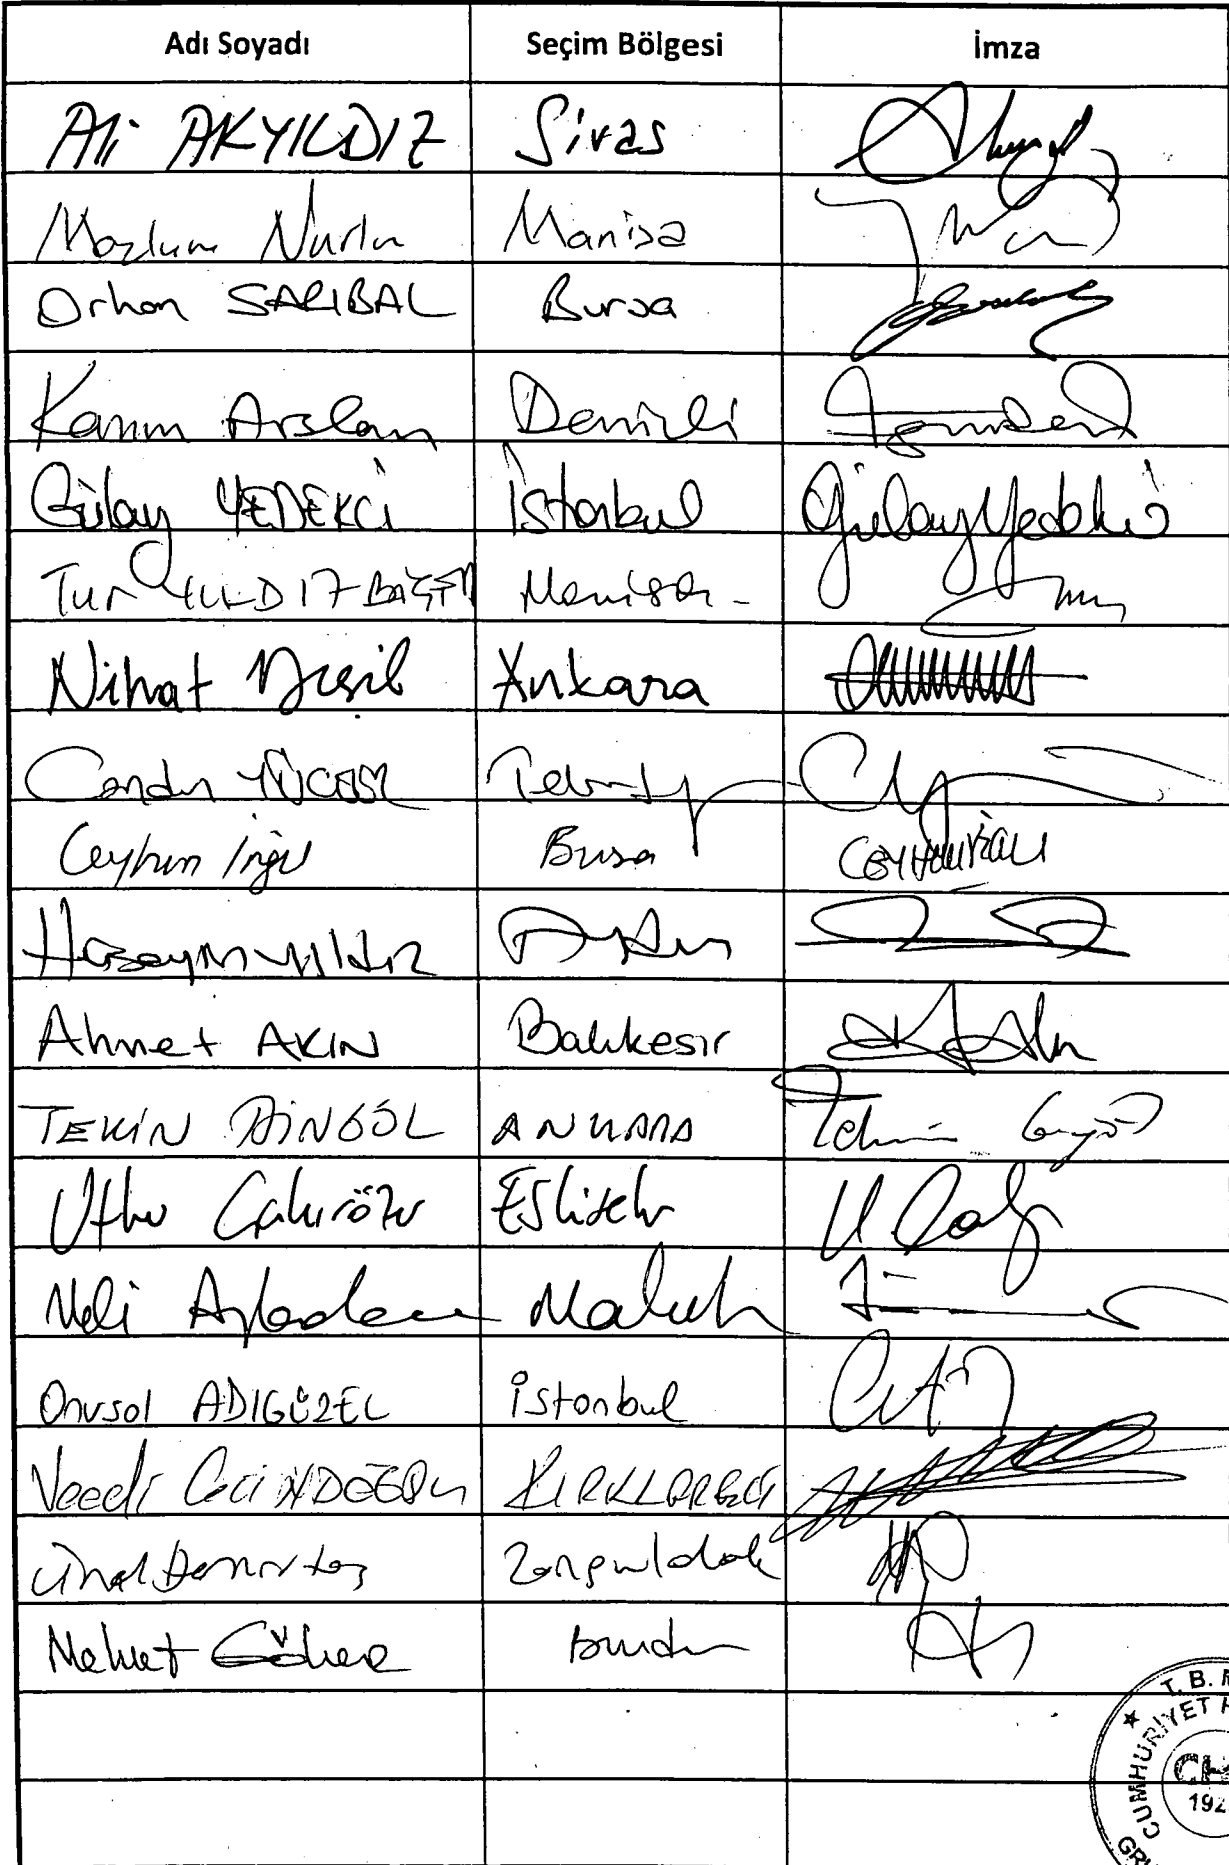 Adı Soyadı Seçim Bölgesi İmza
Ali AKYILDIZ Sivas
Mazlum Nurlu Manisa
Orhan SARIBAL Bursa
Kazım Arslan Denizli
Gülay YEDEKCİ İstanbul Gülay Yedekci
Tur YILDIZ BİÇER Manisa
Nihat Yeşil Ankara
Candan YÜCEER Tekirdağ
Ceyhun İrgil Bursa CEYHUN İRGİL
Hüseyin Yıldız Aydın
Ahmet AKIN Balıkesir
TEKİN BİNGÖL ANKARA Tekin Bingöl
Utku Çakırözer Eskişehir
Veli Ağbaba Malatya
Onursal ADIGÜZEL İstanbul
Vecdi GÜNDOĞDU KIRKLARELİ
Ünal Demirtaş Zonguldak
Mehmet Göker Burdur
T. B. M
CUMHURİYET H
CH
192
GR